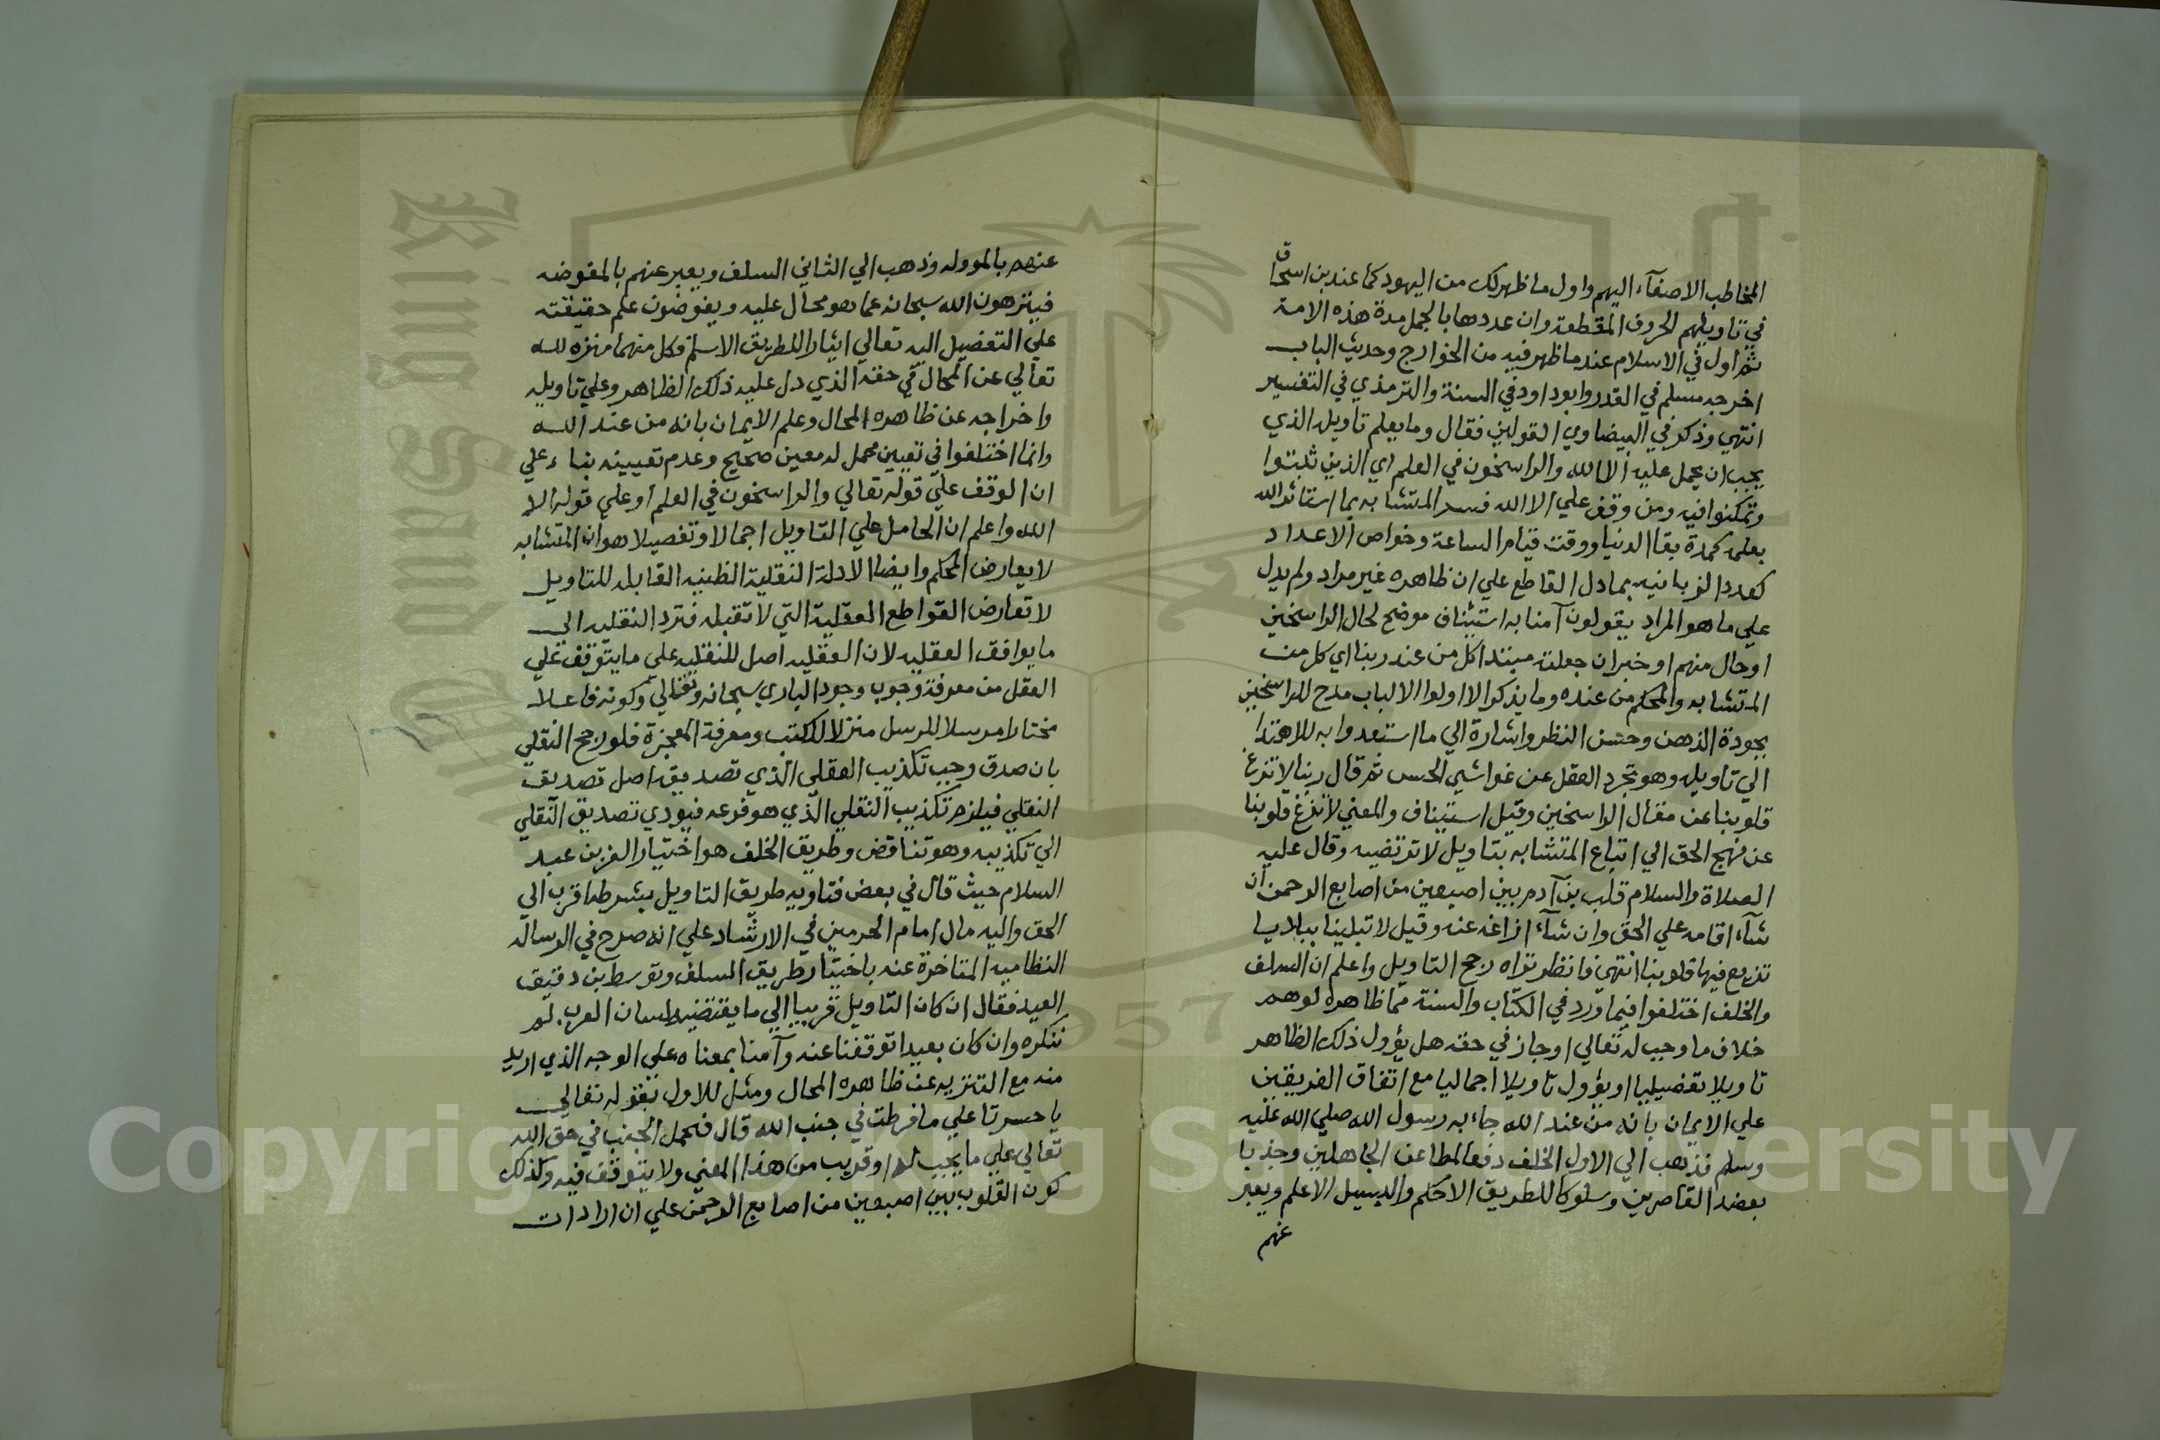 المخاطب الاصغآء اليهم واول ما ظهر لك من اليهود كما عند بن اسحاق
في تاويلهم الحروف المقطعة وان عددها بالجمل مدة هذه الامة
ثم اول في الاسلام عند ما ظهر فيه من الخوارج وحديث الباب
اخرجه مسلم في القدر وابو داود في السنة والترمذي في التفسير
انتهي وذكر في البيضاوي القولين فقال وما يعلم تاويله الذي
يجب ان يحمل عليه الا الله والراسخون في العلم اي الذين ثبتوا
وتمكنوا فيه ومن وقف علي الا الله فسر المتشابه بما استاثر الله
بعلمه كمدة بقا الدنيا ووقت قيام الساعة وخواص الاعداد
كعدد الزبانيه بما دل القاطع علي ان ظاهره غير مراد ولم يدل
علي ما هو المراد يقولون آمنا به استيناف موضح لحال الراسخين
او حال منهم او خبر ان جعلته مبتدا كل من عند ربنا اي كل من
المتشابه والمحكم من عنده وما يذكر الا اولوا الالباب مدح للراسخين
بجودة الذهن وحسن النظر واشارة الي ما استعدوا به للاهتدا
الي تاويله وهو تجرد العقل عن غواشي الحس ثم قال ربنا لا تزغ
قلوبنا عن مقال الراسخين وقيل استيناف والمعني لا تزغ قلوبنا
عن نهج الحق الي اتباع المتشابه بتاويل لا ترتضيه وقال عليه
الصلاة والسلام قلب بن آدم بين اصبعين من اصابع الرحمن ان
شآء اقامه علي الحق وان شآء ازاغه عنه وقيل لا تبلينا ببلايا
تزيغ فيها قلوبنا انتهي فانظر تراه رجح التاويل واعلم ان السلف
والخلف اختلفوا فيما ورد في الكتاب والسنة مما ظاهره لوهم
خلاف ما وجب له تعالي او جاز في حقه هل يؤول ذلك الظاهر
تاويلا تفضيليا او يؤول تاويلا اجماليا مع اتفاق الفريقين
علي الايمان بانه من عند الله جاء به رسول الله صلي الله عليه
وسلم فذهب الي الاول الخلف دفعا لمطاعن الجاهلين وجذبا
بعضد القاصرين وسلوكا للطريق الاحكم والسبيل الاعلم ويعبر
عنهم
عنهم بالموولة وذهب الي الثاني السلف ويعبر عنهم بالمفوضه
فينزهون الله سبحانه عما هو محال عليه ويفوضون علم حقيقته
علي التفصيل اليه تعالي ايثارا للطريق الاسلم فكل منهما منزه لله
تعالي عن المحال في حقه الذي دل عليه ذلك الظاهر وعلي تاويله
واخراجه عن ظاهره المحال وعلم الايمان بانه من عند الله
وانما اختلفوا في تعيين محمل له معين صحيح وعدم تعيينه بناء علي
ان الوقف علي قوله تعالي والراسخون في العلم او علي قوله الا
الله واعلم ان الحامل علي التاويل اجمالا وتفصيلا هو ان المتشابه
لا يعارض المحكم وايضا الادلة النقلية الظنيه القابله للتاويل
لا تعارض القواطع العقلية التي لا تقبله فترد النقليه الي
ما يوافق العقليه لان العقليه اصل للنقليه علي ما يتوقف علي
العقل من معرفة وجوب وجود الباري سبحانه وتعالي وكونه فاعلا
مختارا مرسلا للرسل منزلا للكتب ومعرفة المعجزة فلو رجح النقلي
بان صدق وجب تكذيب العقلي الذي تصديقه اصل تصديق
النقلي فيلزم تكذيب النقلي الذي هو فرعه فيودي تصديق النقلي
الي تكذيبه وهو تناقض وطريق الخلف هو اختيار العز بن عبد
السلام حيث قال في بعض فتاويه طريق التاويل بشرطها قرب الي
الحق واليه مال امام الحرمين في الارشاد علي انه صرح في الرسالة
النظاميه المتاخرة عنه باختيار طريق السلف وتوسط بن دقيق
العيد فقال ان كان التاويل قريبا الي ما يقتضيه لسان العرب لم
ننكره وان كان بعيدا توقفنا عنه وآمنا بمعناه علي الوجه الذي اريد
منه مع التنزيه عن ظاهره المحال ومثل للاول بقوله تعالي
يا حسرتا علي ما فرطت في جنب الله قال فحمل الجنب في حق الله
تعالي علي ما يجب له او قريب من هذا المعني ولا يتوقف فيه وكذلك
كون القلوب بين اصبعين من اصابع الرحمن علي ان ارادات
King Saud University
1957
Copyright © King Saud University